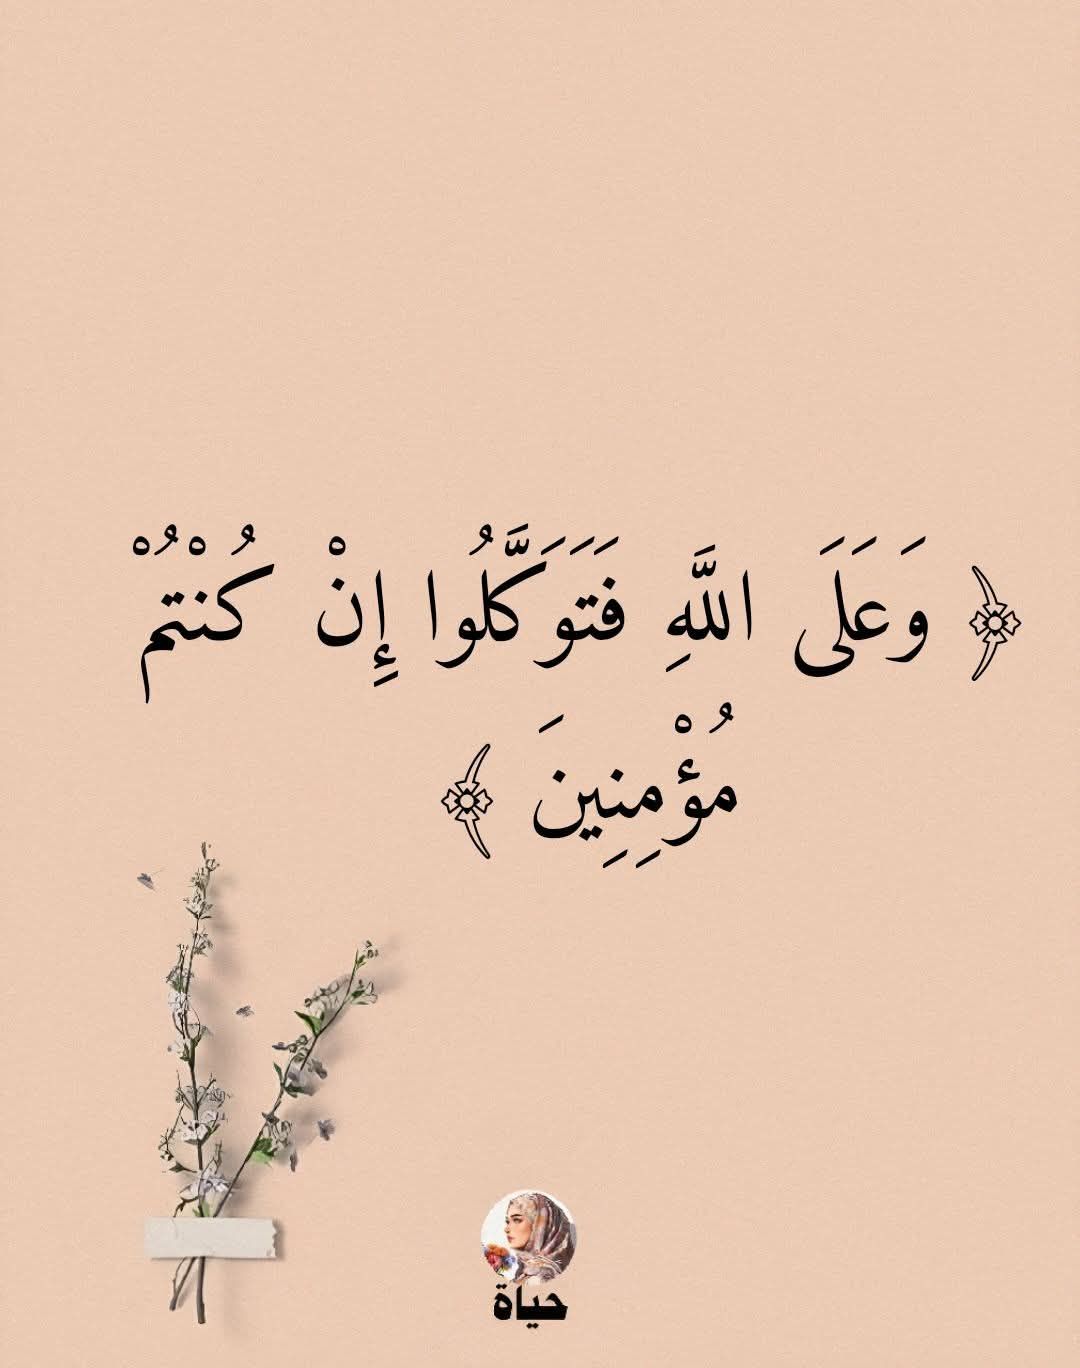 ﴿ وَعَلَى اللَّهِ فَتَوَكَّلُوا إِنْ كُنْتُمْ
مُؤْمِنِينَ ﴾
حياة